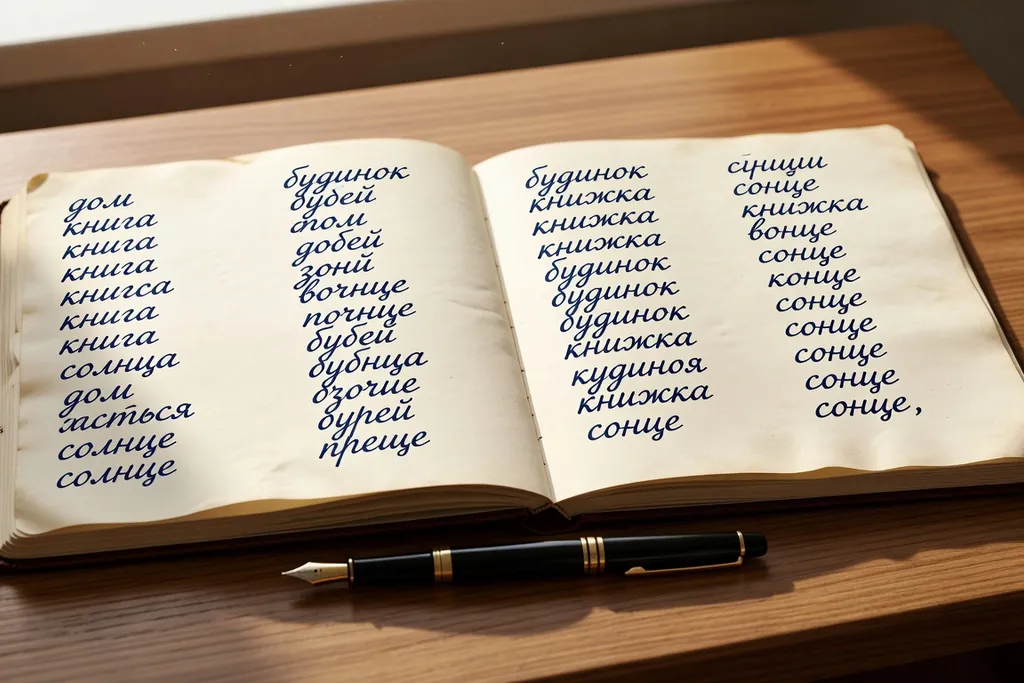 дом
книга
книга
книга
книгса
книга
книга
солнца
дом
солнце
солнце
будинок
бубей
спом
добей
зонй
вочнце
почнце
бубей
бубнца
бзочие
бурей
преще
будинок
книжка
книжка
книжка
будинок
будинок
будинок
книжка
кудиноя
книжка
сонце
сонце
книжка
вонце
сонце
конце
сонце
сонце
сонце
сонце
сонце,